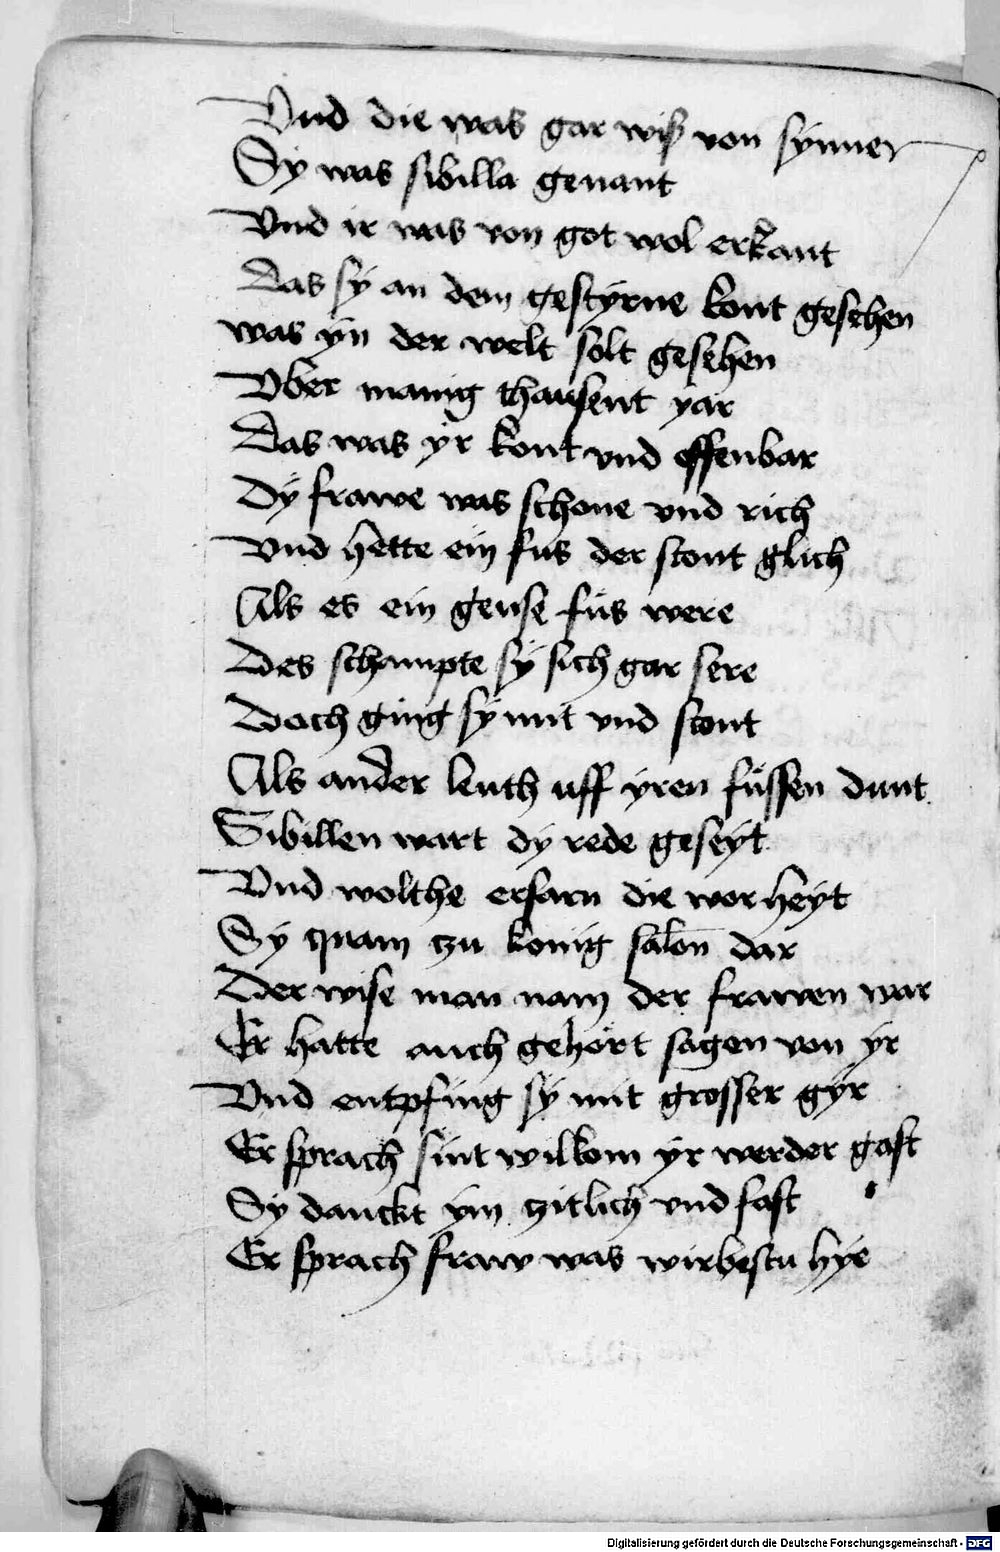 Vnd die was gar wiß von synner
Sy was sibilla genant
Vnd ir was von got wol erkant
Das sy an dem gestyrne kont gesehen
was yn der welt solt gesehen
Vber manig thausent yar
Das was yr kont vnd offenbar
Dy frawe was schone vnd rich
Vnd hette ein fus der stont glich
Als es ein gense fus were
Des schampte sy sich gar sere
Doch ging sy mit vnd stont
Als ander leuth uff yren füssen dunt
Sibillen wart dy rede geseyt
Vnd wolthe erfarn die worheyt
Sy quam czu konig salon̄ dar
Der wise man nam der frawen war
Er hatte auch gehort sagen von yr
Vnd entpfing sy mit grosser gyr
Er sprach sint wilkom yr werder gast
Sy danckt ym czitlich vnd fast
Er sprach fraw was wirbestu hye
Digitalisierung gefördert durch die Deutsche Forschungsgemeinschaft - DFG